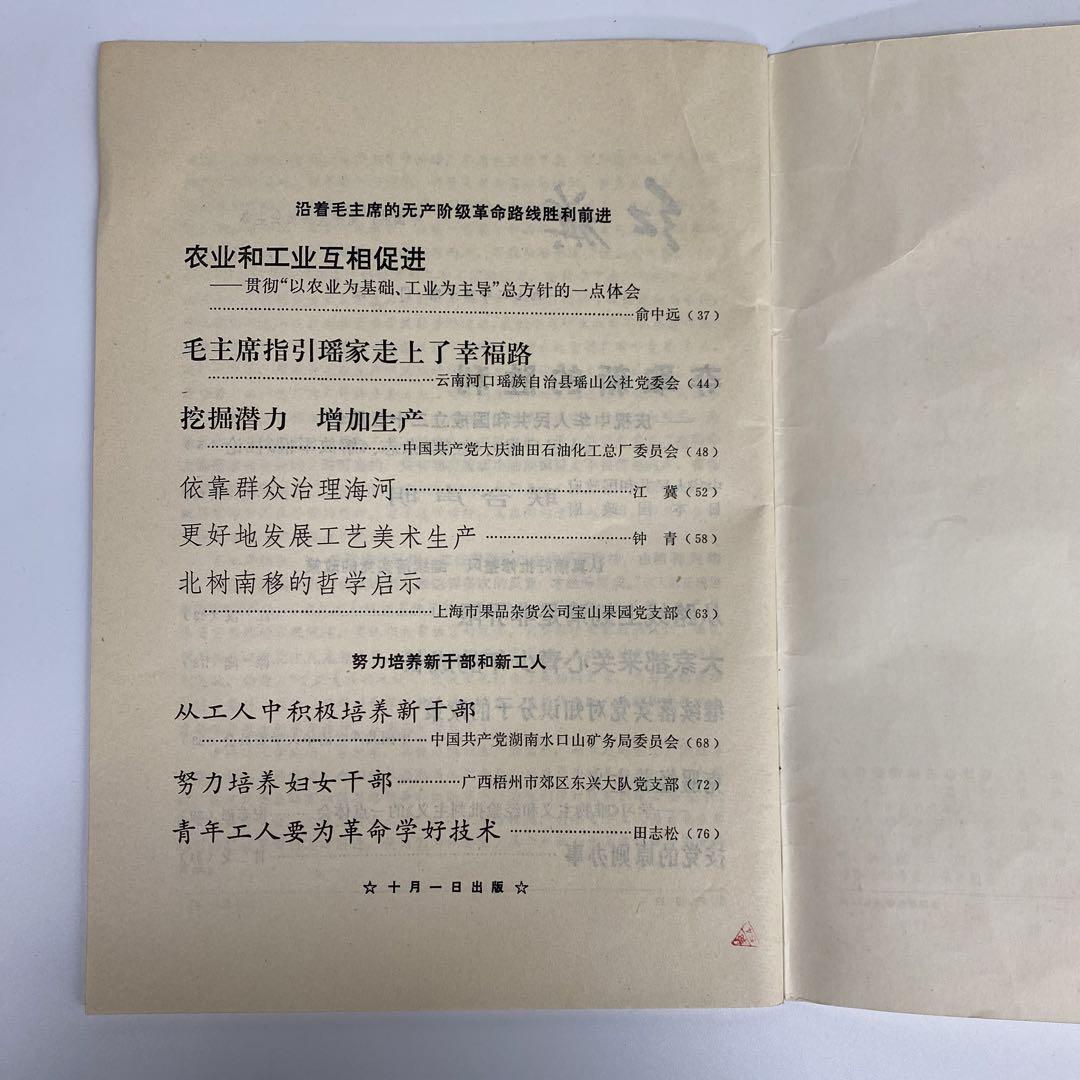 沿着毛主席的无产阶级革命路线胜利前进
农业和工业互相促进
——贯彻“以农业为基础、工业为主导”总方针的一点体会
俞中远(37)
毛主席指引瑶家走上了幸福路
云南河口瑶族自治县瑶山公社党委会(44)
挖掘潜力 增加生产
中国共产党大庆油田石油化工总厂委员会(48)
依靠群众治理海河 江 冀(52)
更好地发展工艺美术生产 钟 青(58)
北树南移的哲学启示
上海市果品杂货公司宝山果园党支部(63)
努力培养新干部和新工人
从工人中积极培养新干部
中国共产党湖南水口山矿务局委员会(68)
努力培养妇女干部 广西梧州市郊区东兴大队党支部(72)
青年工人要为革命学好技术 田志松(76)
☆十月一日出版☆